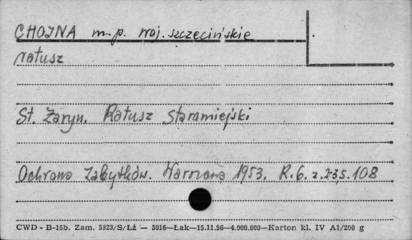 CHOJNA m.p. woj. szczecińskie
ratusz
St. Żaryn. Ratusz staromiejski
Ochrona Zabytków. Warszawa 1953. R.6. z.2-3 s.108
CWD - B-15b. Zam. 5823/S/Łż — 3016—Łak—15.11.56—4.000.000—Karton kl. IV A1/200 g